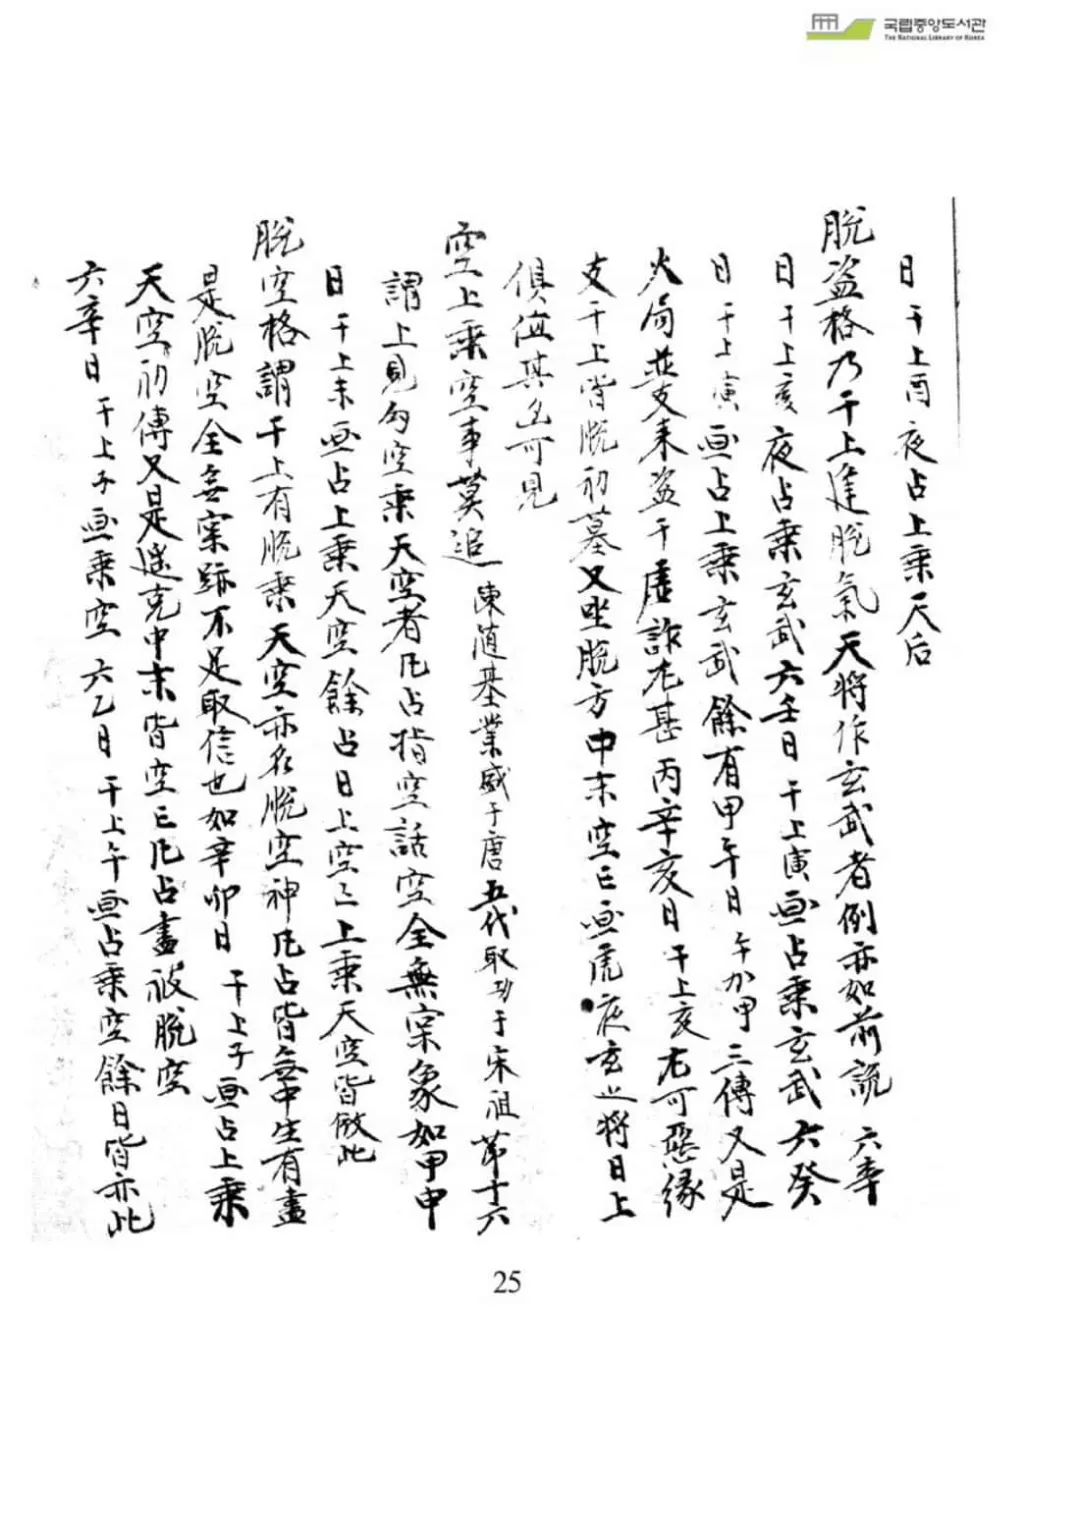 국립중앙도서관
THE NATIONAL LIBRARY OF KOREA
日干上酉夜占上乘天后
脫盜格乃干上逢脫氣天將作玄武者例亦如前說 六辛
日干上亥夜占乘玄武六壬日干上寅畫占乘玄武六癸
日干上寅畫占上乘玄武餘有甲午日午加甲三傳又是
火局並支來盜干虛詐尤甚丙辛亥日干上亥尤可惡緣
支干上皆脫初墓又坐脫方中末空亡畫虎夜玄之將日上
俱値其名可見
空上乘空事莫追 陳隨基業盛于唐五代取功于宋祖第十六
謂上見旬空乘天空者凡占指空話空全無宲象如甲申
日干上未畫占上乘天空餘占日上空亡上乘天空皆倣此
脫空格謂干上有脫乘天空亦名脫空神凡占皆無中生有盡
是脫空全無宲跡不足取信也如辛卯日干上子畫占上乘
天空初傳又是遙克中末皆空亡凡占盡被脫空
六辛日干上子畫乘空 六乙日干上午畫占乘空餘日皆亦此
25